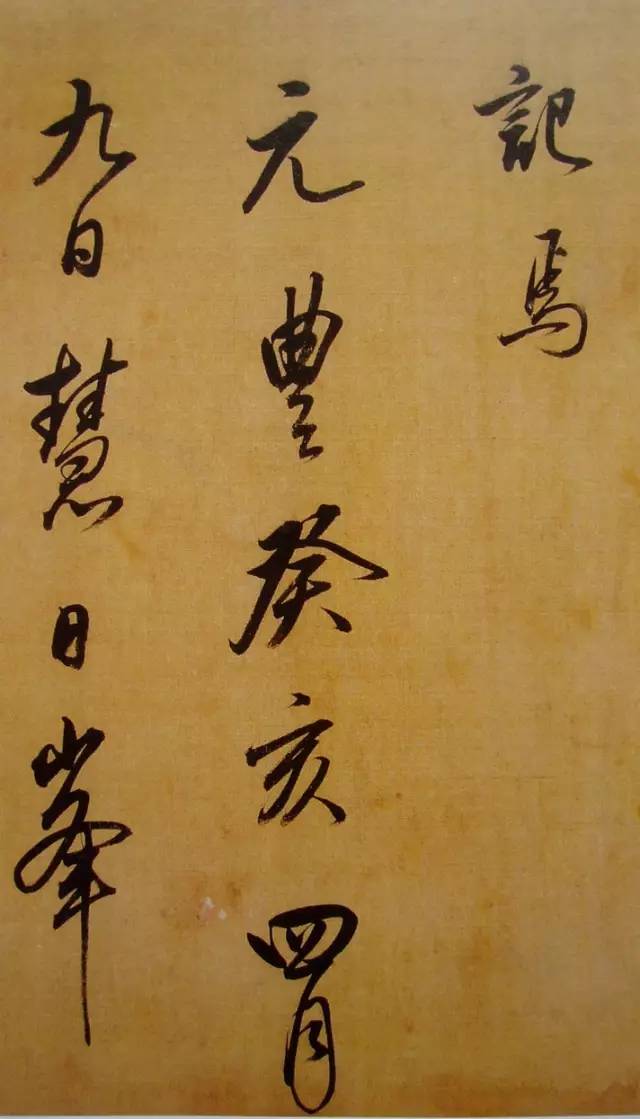 記焉
元豊癸亥四月
九日慧日峯